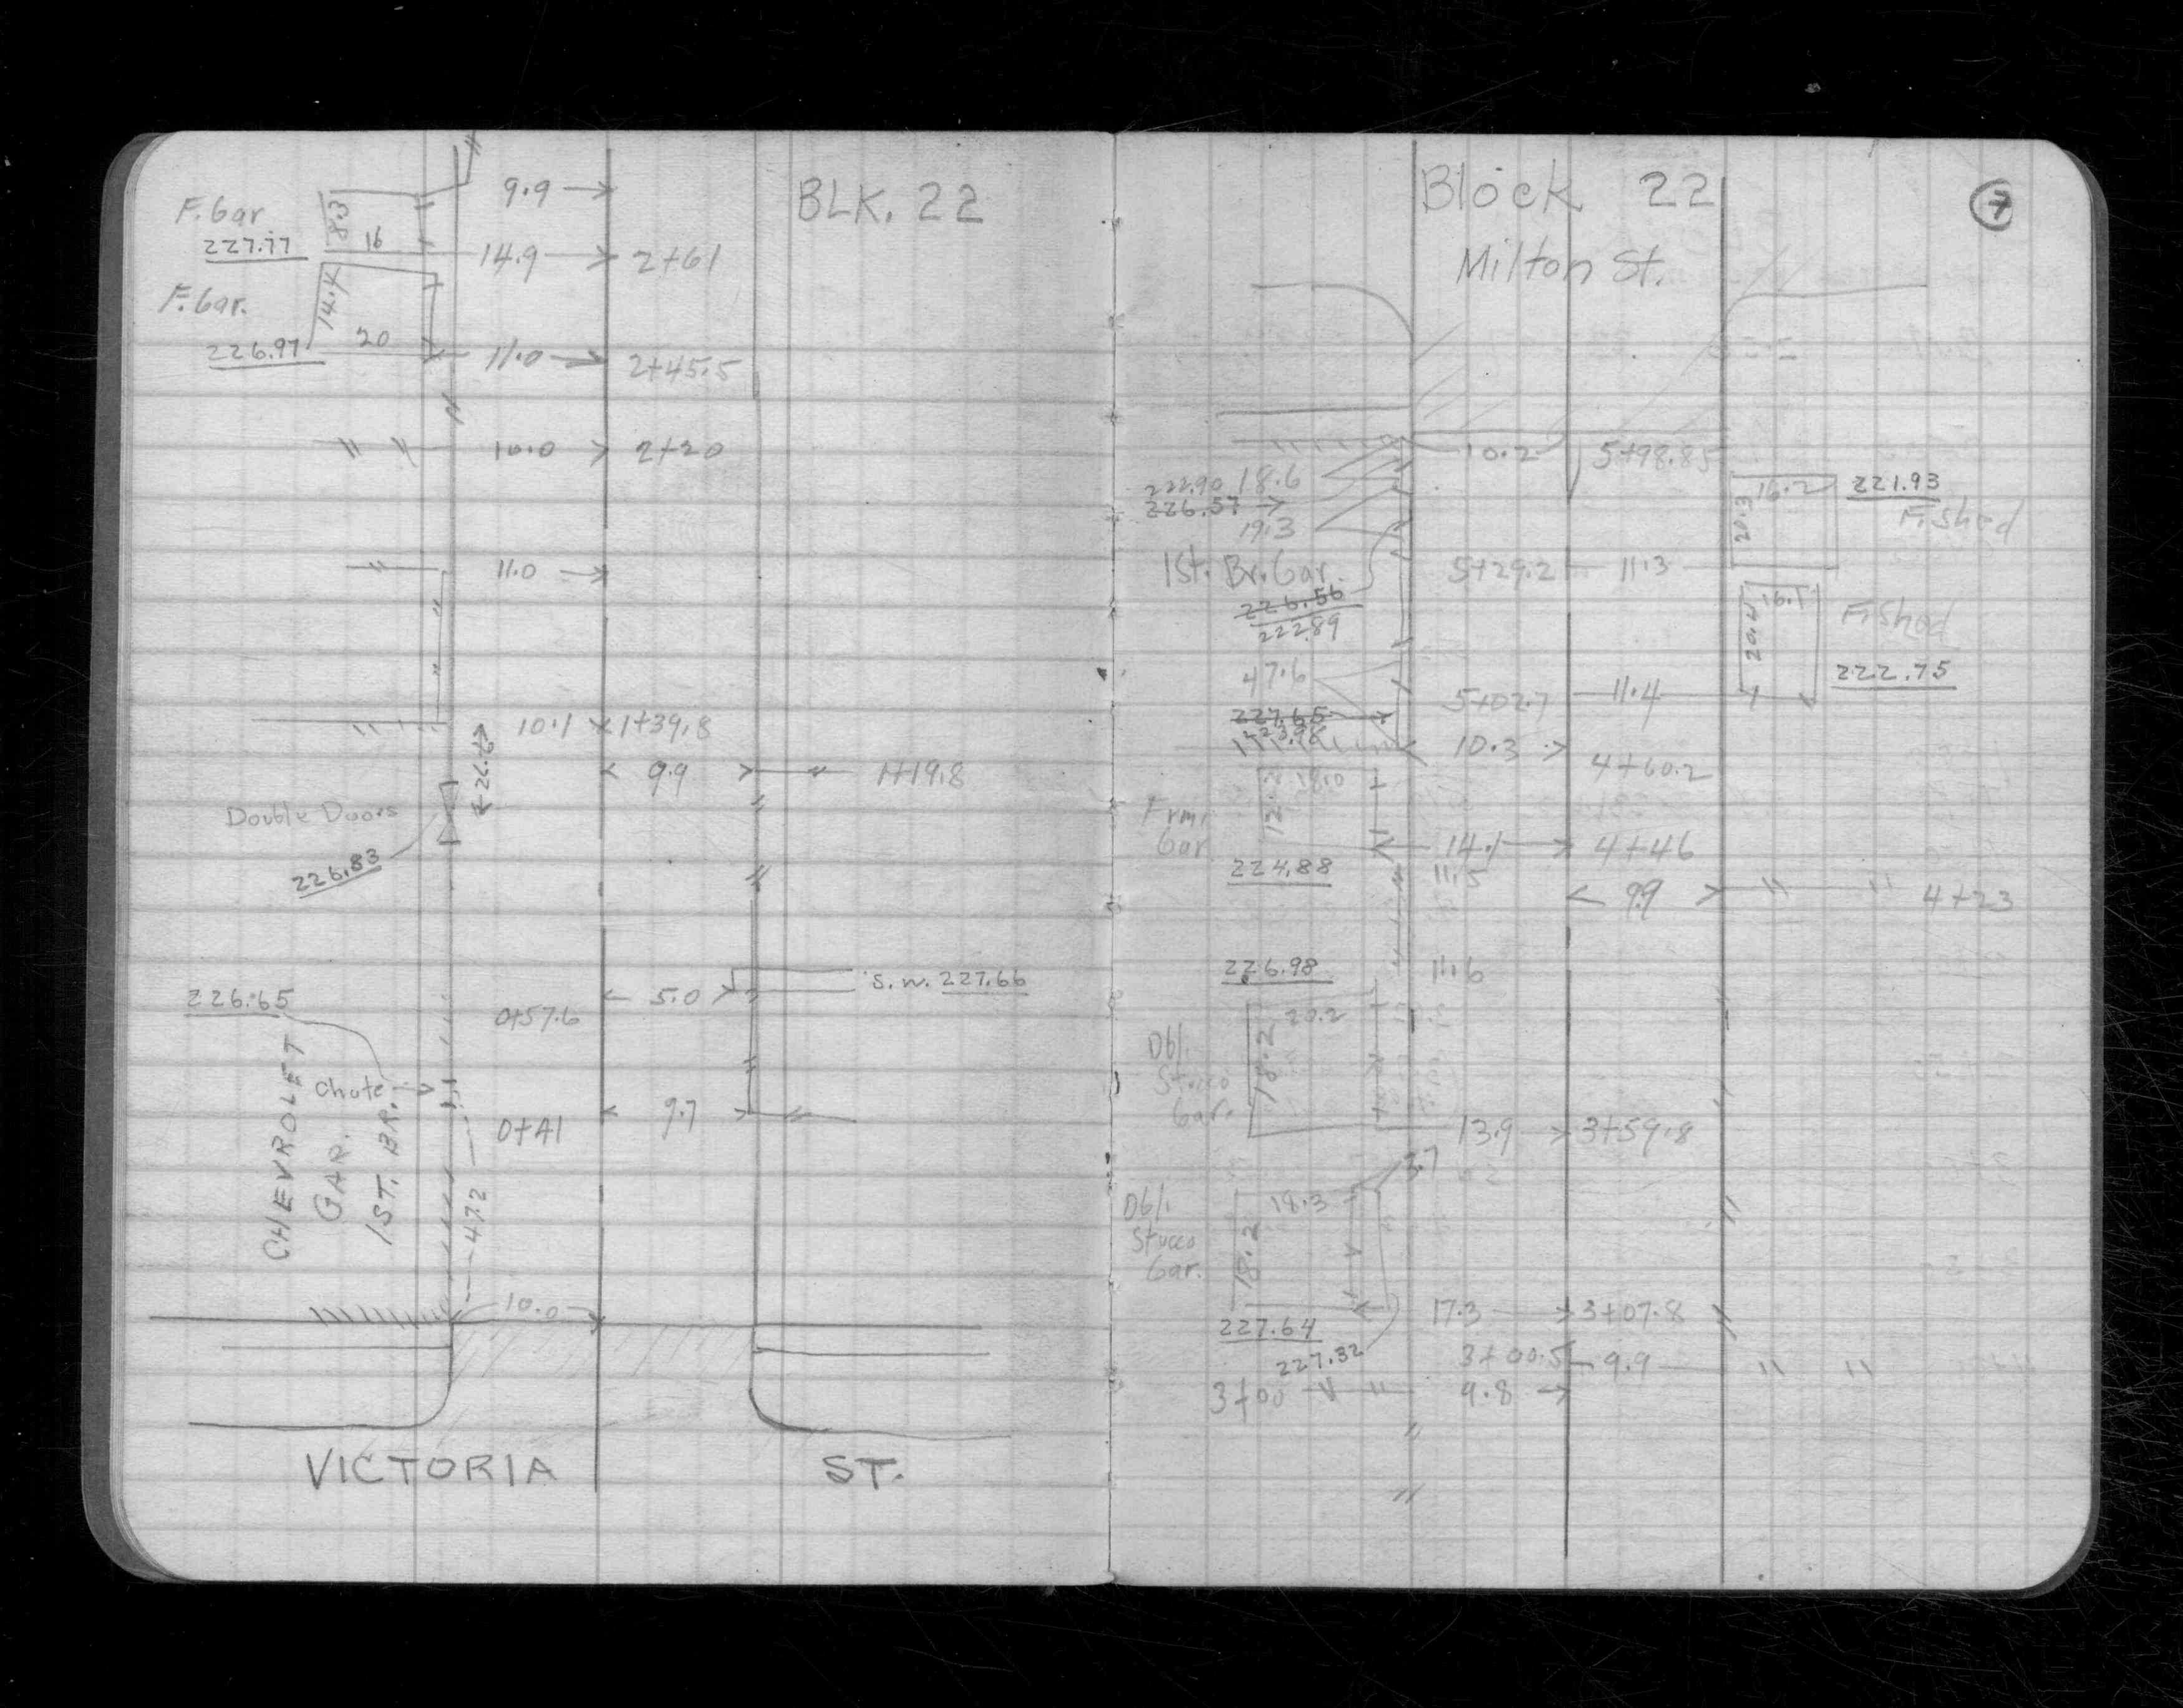 BLK. 22
9.9
F. Gar
8.3
227.77
16
14.9
2+61
F. Gar.
14.4
20
226.97
11.0
2+45.5
10.0
2+20
11.0
10.1
1+39.8
22.6
9.9
1+19.8
Double Doors
226.83
S.W. 227.66
5.0
226.65
0+57.6
Chute
CHEVROLET
GAR.
1ST. BR.
9.7
0+41
47.2
10.0
VICTORIA ST.
Block 22
7
Milton St.
10.2
5+98.85
222.90 18.6
226.57
19.3
16.2
221.93
20.3
F. Shed
1St. Br. Gar.
5+29.2
11.3
226.56
222.89
20.4
F. Shed
222.75
47.6
5+02.7
11.4
227.65
10.3
4+60.2
18.0
Frm.
Gar
14.1
4+46
224.88
11.5
9.9
4+23
226.98
11.6
20.2
18.2
Dbl.
Stucco
Gar.
13.9
3+59.8
3.7
Dbl.
Stucco
Gar.
18.3
18.2
17.3
3+07.8
227.64
227.32
3+00.5
9.9
3+00
9.8